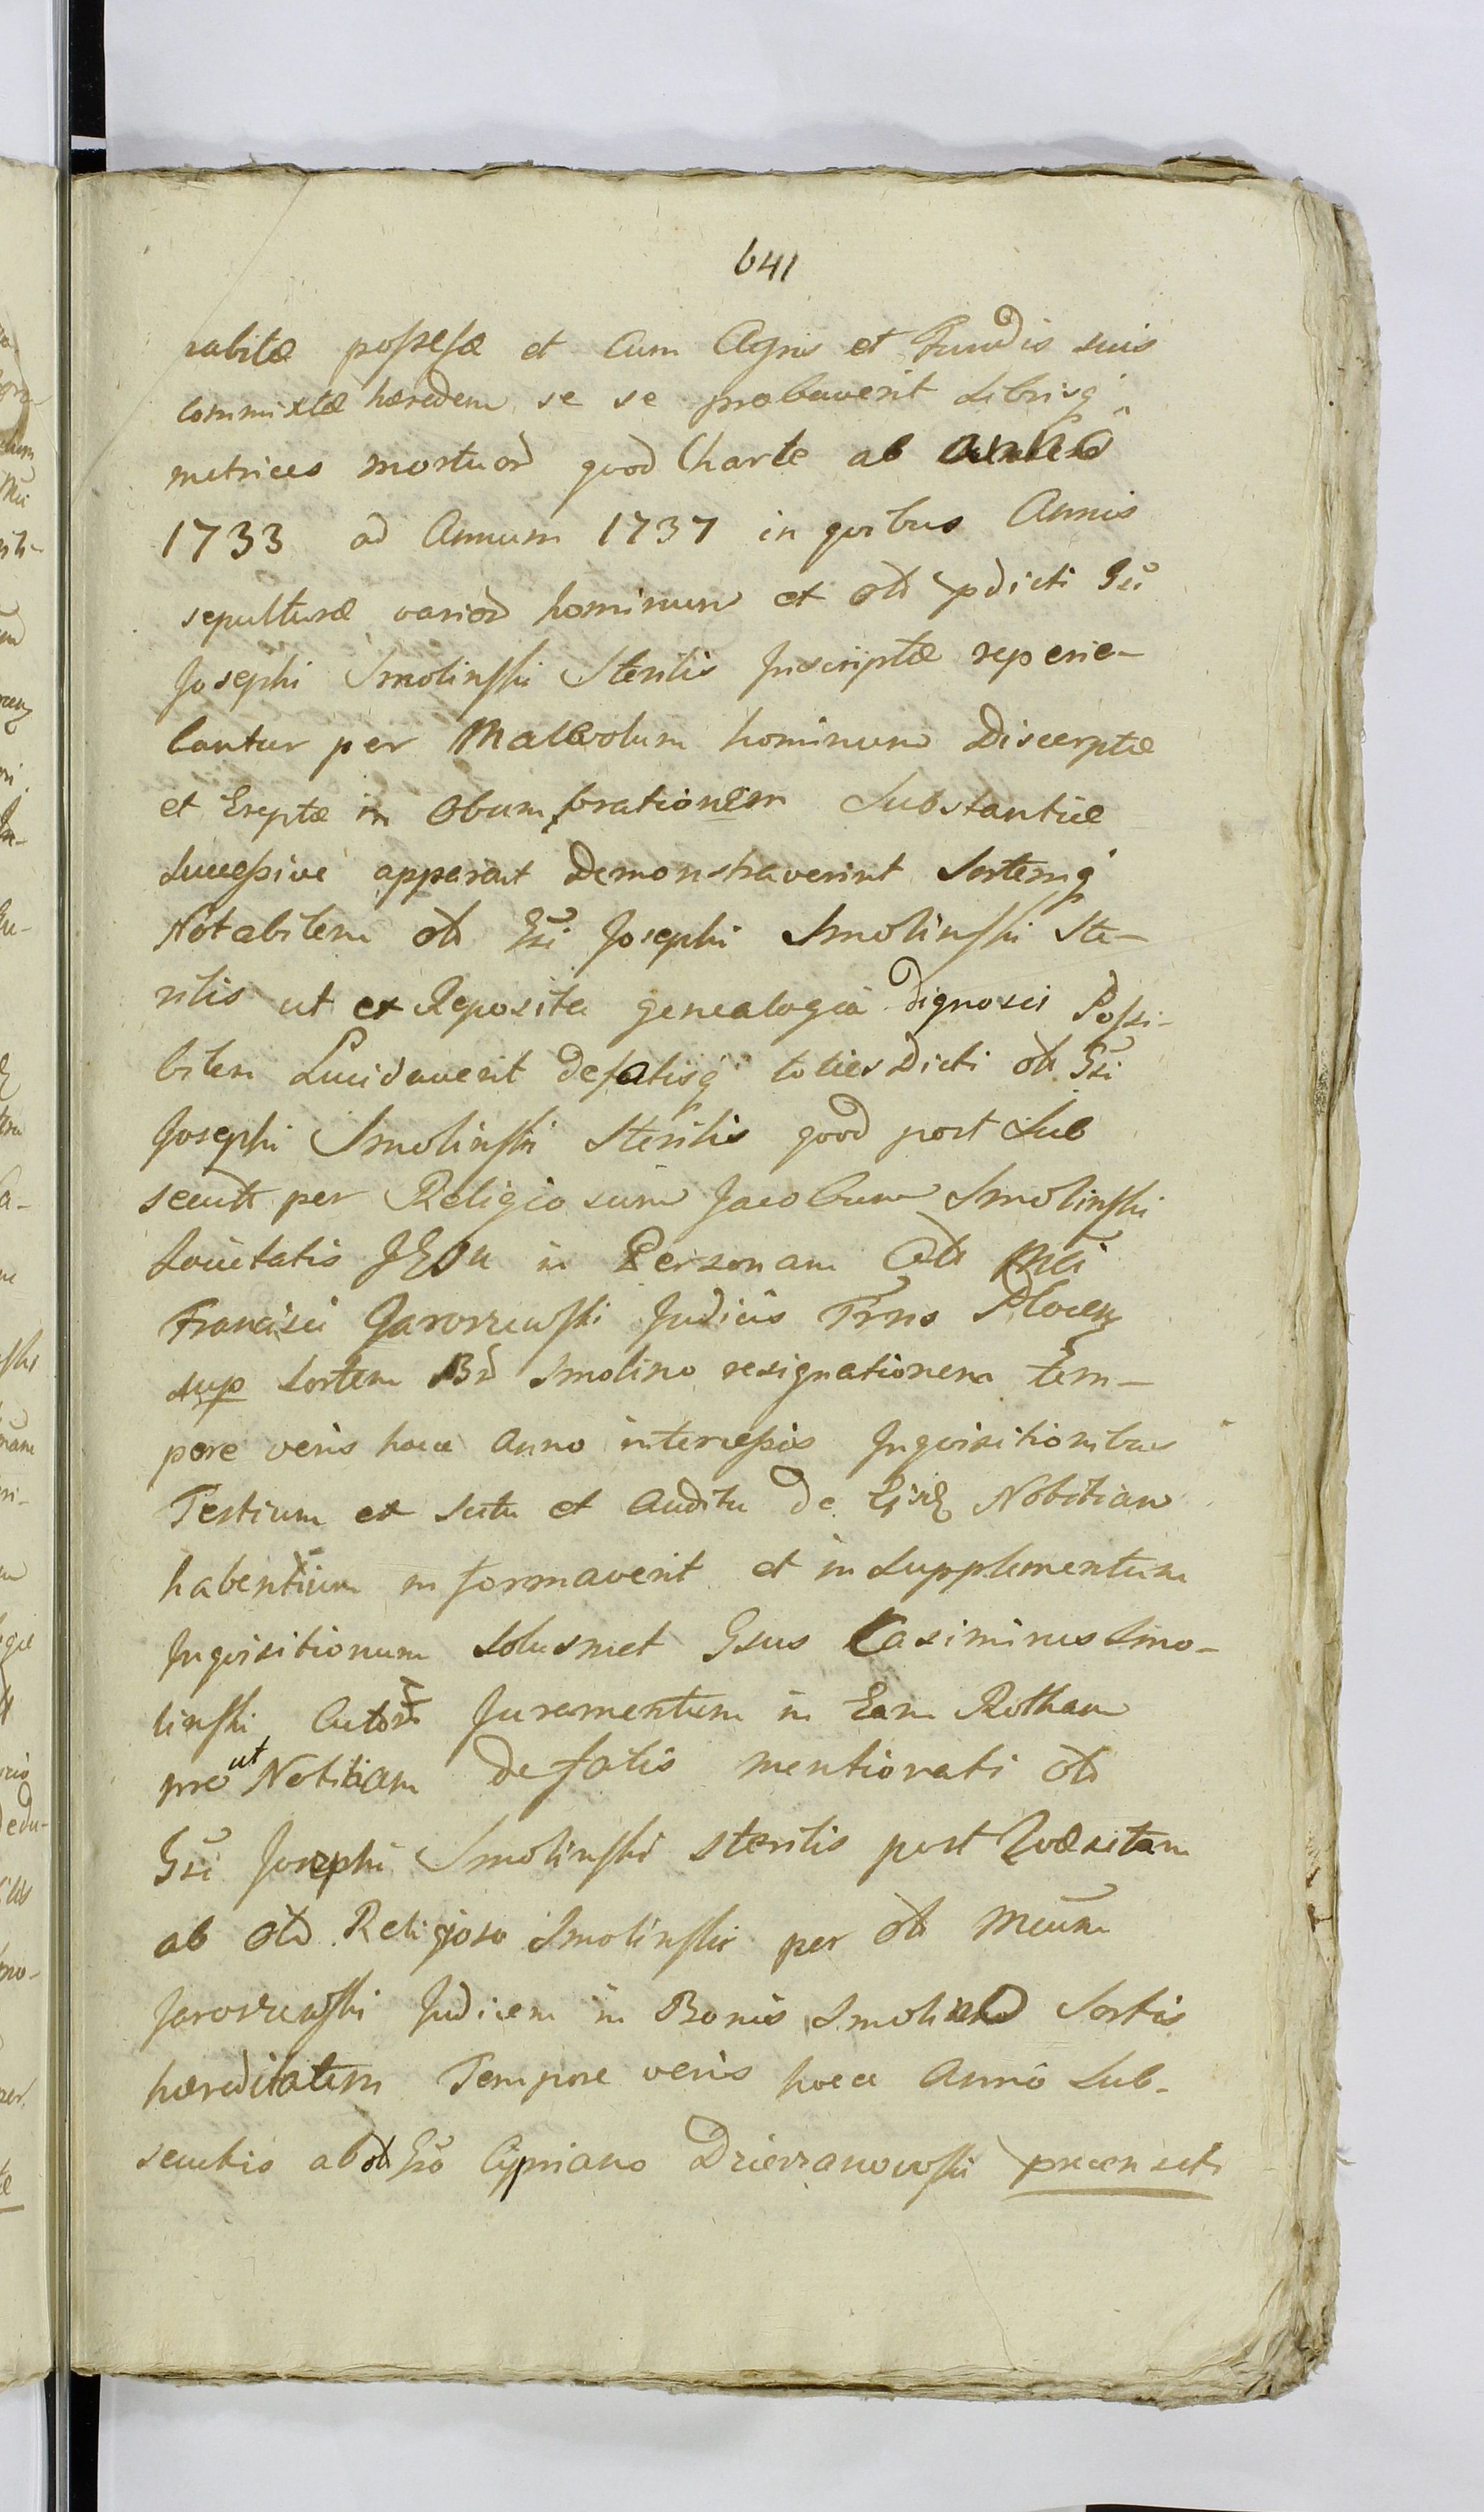 641
rabitæ possessæ et Cum Agris et Fundis suis
commixtæ hæredem se se probaverit Librisq
metrices mortuor quod Charte ab Anno
1733 ad Annum 1737 in quibus Annis
sepulturæ varior hominum et olt pdicti Gsi
Josephi Smolinski Sterilis Inscriptæ reperie-
bantur per Malevolum hominum Discerptæ
et Ereptæ in Obumbrationem Substantiæ
Successive apparent Demonstraverint Sortemq
Notabilem olt Gsi Josephi Smolinski Ste-
rilis ut ex Reposita genealogia dignosci Possi-
bilem Lucidaverit defatisq toties Dicti olt Gsi
Josephi Smolinski Sterilis quod post Sub
secut per Religiosum Jacobum Smolinski
Societatis JESu in Personam Olt Mci
Francisci Jaroszewski Judicis Trris Plocen
sup Sortem Bd Smolino resignationem tem-
pore veris hocce Anno intercessis Inquisitionibus
Testium ex Scitu et Auditu De Eisd Notitiam
habentium informaverit et in Supplementum
Inquisitionum Solusmet Gsus Casimirus Smo-
linski Actor Juramentum in Eam Rotham
pro ut Notitiam de fatis mentionati olt
Gsi Josephi Smolinski sterilis post
ab olt Religioso Smolinski per olt Mcum
Jaroszewski Judicem in Bonis Smolino Sortis
hæreditatem Tempore veris hocce Anno Sub-
secutis ab olt Gso Cypriano Dzierzanowski